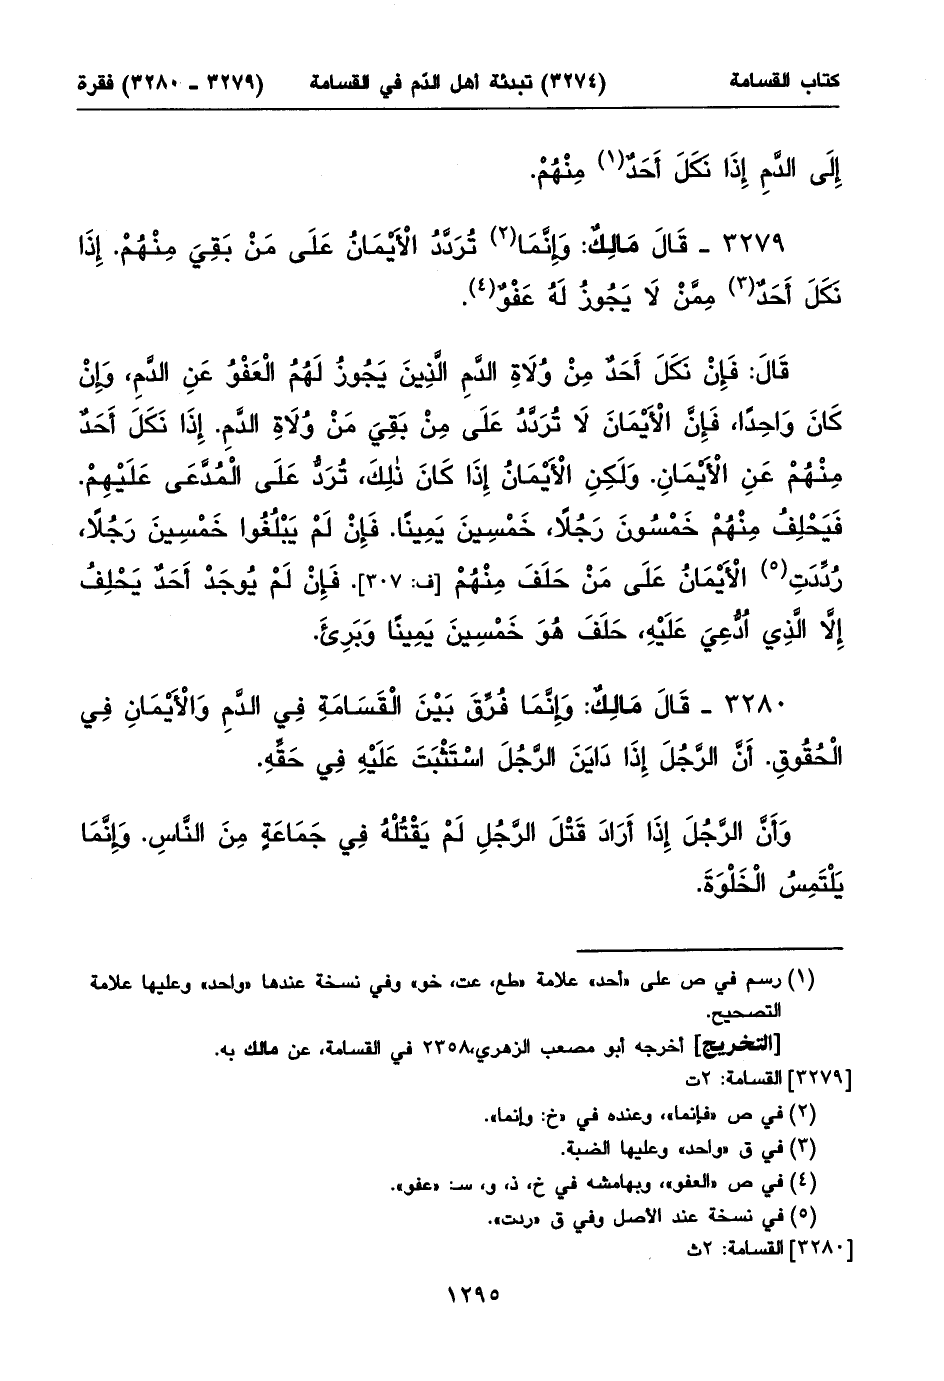 كتاب القسامة (٣٢٧٤) تبدئة أهل الدّم في القسامة (٣٢٧٩ ـ ٣٢٨٠) فقرة
إِلَى الدَّمِ إِذَا نَكَلَ أَحَدٌ(١) مِنْهُمْ.
٣٢٧٩ ـ قَالَ مَالِكٌ: وَإِنَّمَا(٢) تُرَدَّدُ الْأَيْمَانُ عَلَى مَنْ بَقِيَ مِنْهُمْ. إِذَا
نَكَلَ أَحَدٌ(٣) مِمَّنْ لَا يَجُوزُ لَهُ عَفْوٌ(٤).
قَالَ: فَإِنْ نَكَلَ أَحَدٌ مِنْ وُلَاةِ الدَّمِ الَّذِينَ يَجُوزُ لَهُمُ الْعَفْوُ عَنِ الدَّمِ، وَإِنْ
كَانَ وَاحِدًا، فَإِنَّ الْأَيْمَانَ لَا تُرَدَّدُ عَلَى مِنْ بَقِيَ مَنْ وُلَاةِ الدَّمِ. إِذَا نَكَلَ أَحَدٌ
مِنْهُمْ عَنِ الْأَيْمَانِ. وَلَكِنِ الْأَيْمَانُ إِذَا كَانَ ذٰلِكَ، تُرَدُّ عَلَى الْمُدَّعَى عَلَيْهِمْ.
فَيَحْلِفُ مِنْهُمْ خَمْسُونَ رَجُلًا، خَمْسِينَ يَمِينًا. فَإِنْ لَمْ يَبْلُغُوا خَمْسِينَ رَجُلًا،
رُدِّدَتِ(٥) الْأَيْمَانُ عَلَى مَنْ حَلَفَ مِنْهُمْ [ف: ٣٠٧]. فَإِنْ لَمْ يُوجَدْ أَحَدٌ يَحْلِفُ
إِلَّا الَّذِي ادُّعِيَ عَلَيْهِ، حَلَفَ هُوَ خَمْسِينَ يَمِينًا وَبَرِئَ.
٣٢٨٠ ـ قَالَ مَالِكٌ: وَإِنَّمَا فُرِّقَ بَيْنَ الْقَسَامَةِ فِي الدَّمِ وَالْأَيْمَانِ فِي
الْحُقُوقِ. أَنَّ الرَّجُلَ إِذَا دَايَنَ الرَّجُلَ اسْتَثْبَتَ عَلَيْهِ فِي حَقِّهِ.
وَأَنَّ الرَّجُلَ إِذَا أَرَادَ قَتْلَ الرَّجُلِ لَمْ يَقْتُلْهُ فِي جَمَاعَةٍ مِنَ النَّاسِ. وَإِنَّمَا
يَلْتَمِسُ الْخَلْوَةَ.
(١) رسم في ص على «أحد» علامة «طع، عت، خو» وفي نسخة عندها «واحد» وعليها علامة
التصحيح.
[التخريج] أخرجه أبو مصعب الزهري،٢٣٥٨ في القسامة، عن مالك به.
[٣٢٧٩] القسامة: ٢ت
(٢) في ص «فإنما»، وعنده في «خ: وإنما».
(٣) في ق «واحد» وعليها الضبة.
(٤) في ص «العفو»، وبهامشه في خ، ذ، و، سـ: «عفو».
(٥) في نسخة عند الأصل وفي ق «ردت».
[٣٢٨٠] القسامة: ٢ث
١٢٩٥